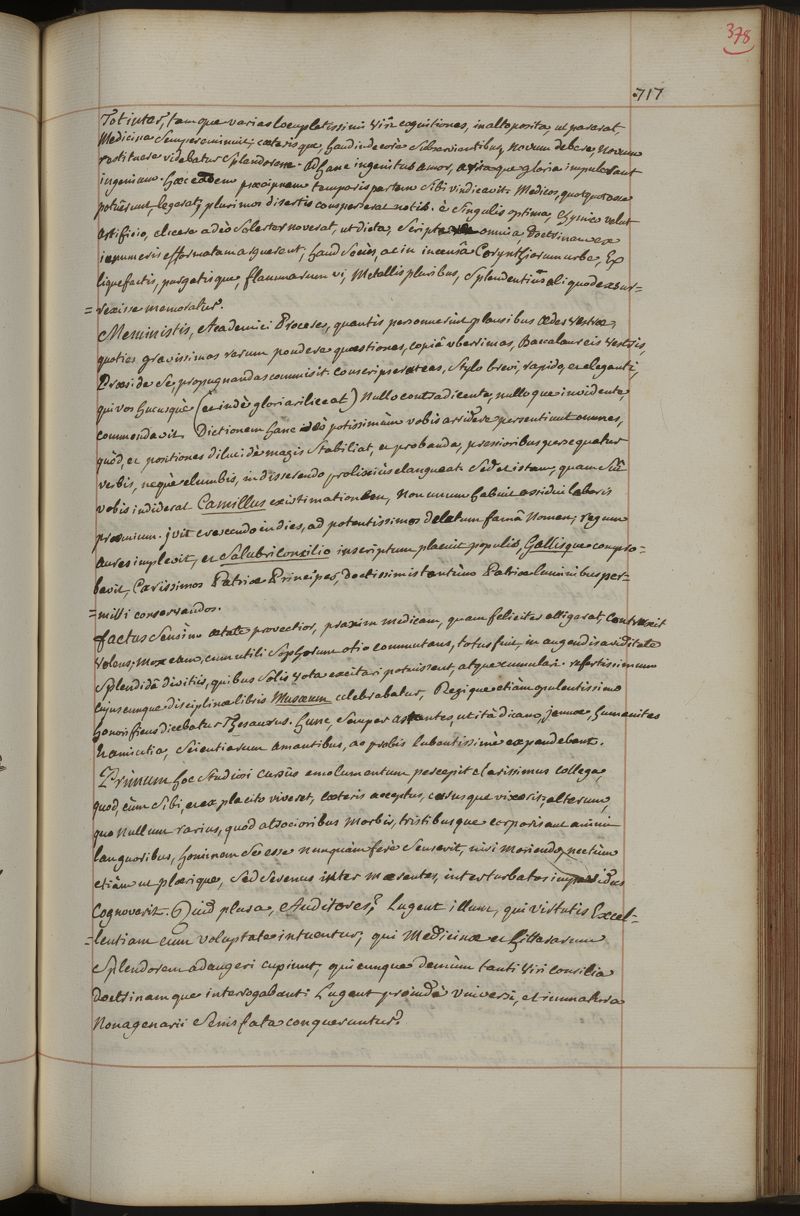 378
717
Tot inter, tamque varias locupletissimi Viri cognitiones, in alto posita, ut par erat
Medicina semper eminuit, cæterisque, haud indecorè subservientibus novum debere, Novum
restituere videbatur splendorem. Ad hanc ingenitus amor, avitæque gloria impulerant
ingenium. Hæc eadem præcipuam temporis partem sibi vindicavit. Medicos, quotquot
potuerunt, legerat; plurimos disertis consperserat notis. è singulis optima, chymico velut
artificio, elicere adeò solerter noverat, ut dicta, scripta omnia Doctrinam ex
innumeris efformatam arguerent, haud secùs, ac in incensâ Corynthiorum urbe, Ex
liquefactis, purgatisque, flammarum vi, Metallis pluribus, splendentius aliquod exsur-
=rexisse memoratur.
Meministis, Academici Proceres, quantis personuerint plausibus ædes vestræ,
quoties gravissimas rerum pondere quæstiones, copiâ uberrimas, Baccalaureis vestris,
Præside se, propugnandas commisit. conscripserat eas, stylo brevi, rapido, et eleganti,
qui vos hucusquè (et indè gloriari liceat) Nullo contradicente, nulloque invidente
commendavit. Dictionem hanc adeò potissimùm vobis arridere persentiunt omnes,
quòd, et positiones dilucidè magis stabiliat, et probanda, pressioribus persequatur
verbis, nequè elumbis, in disserendo prolixiùs elangueat. Sed et istam, quam Sui
vobis indiderat Camillus existimationem, Non unum habuit assidui laboris
præmium. ivit crescendo in dies, ad potentissimos delatum famâ Nomen; regum
aures implevit, et Salubri Consilio inscriptum placuit populis, Gallisque compro-
bavit, Carissimos Patriæ Principes, doctissimis tantùm Patriæ luminibus per-
=mitti conservandos.
factus sensim ætate provectior, praxim medicam, quam feliciter attigerat, contraxit
volens; mox eam, cum utili sophorum otio commutans, totus fuit, in augendis aviditate
splendidâ divitiis, quibus solis vota excitari potuissent, atque cumulari. refertissimum
cujuscumque disciplinæ libris Musæum celebrabatur, Regique etiàm opulentissimo
honorificus dicebatur Thesaurus. Hunc, semper astantes, ut ità dicam, januæ, humanitas
et amicitia, scientiarum amantibus, ac probis lubentissimè expandebant.
Primum hoc studiosi cursûs emolumentum percepit clarissimus collega,
quod, cùm sibi, et ex placito viveret, cæteris acceptus, carusque vixerit; alterum,
quo nullum rarius, quod atrocioribus Morbis, tristibusque corporis aut animi
languoribus, hominem se esse nunquàm ferè senserit, nisi moriendo; nec tùm
etiàm ut plærique, sed serenus inter mærentes, inter turbatos impavidus
Cognoverit. Quid plura, Auditores? Lugent illum, qui Virtutis Excel-
=lentiam cum voluptate intuentur, qui Medicinæ et Litterarum
splendorem adaugeri cupiunt, quicumque demùm tanti Viri consilia
doctrinamque interrogabant. Lugent proindè universi, et immatura
Nonagenarii Senis fata conqueruntur.